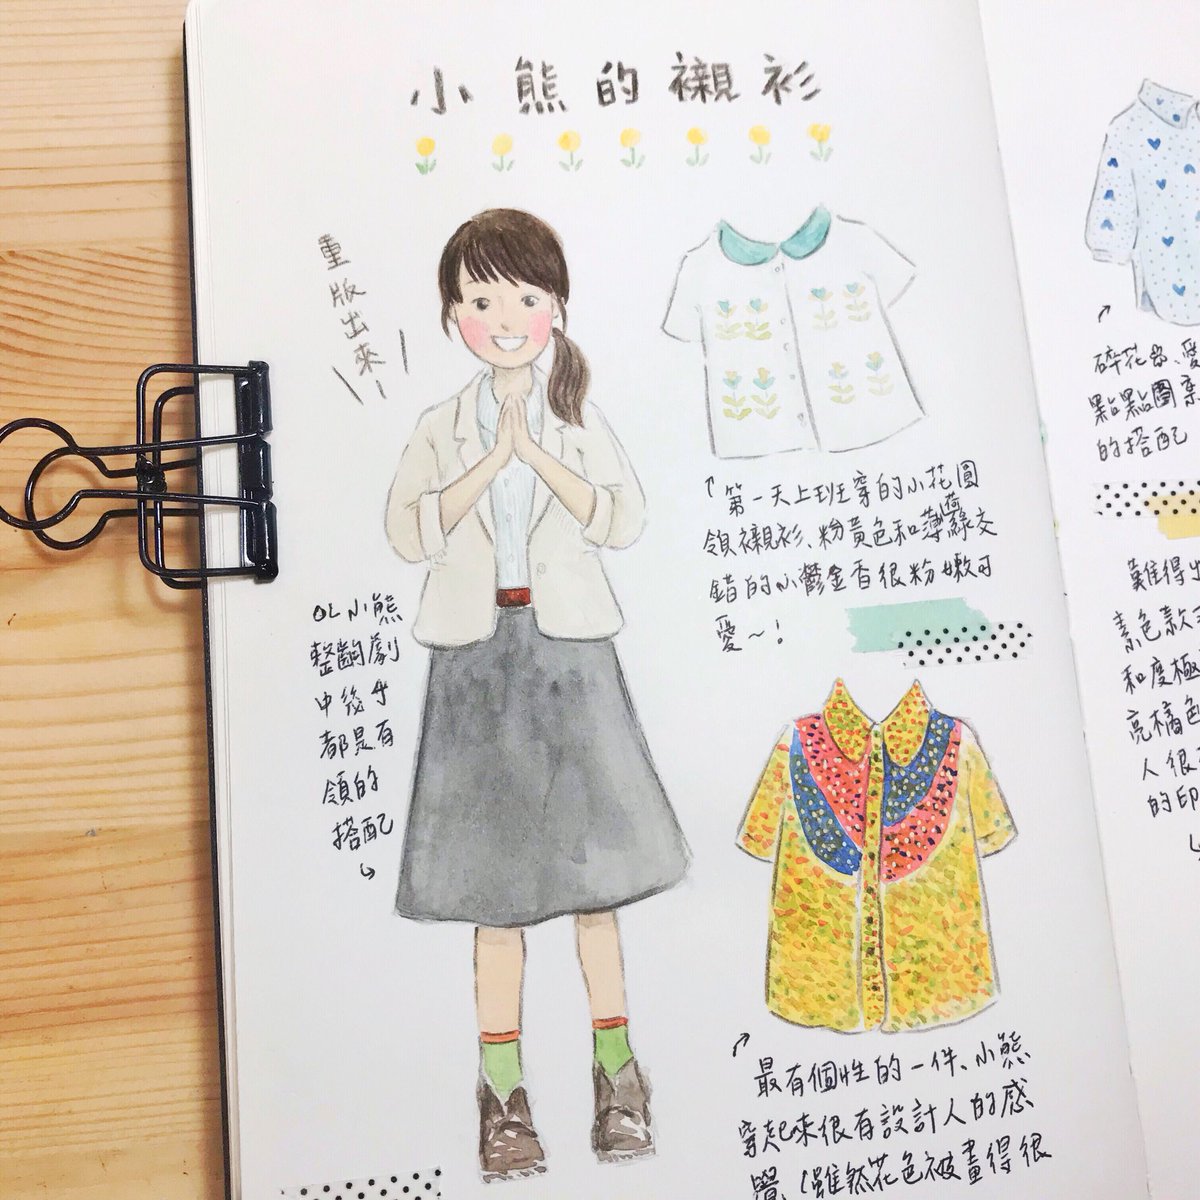 小熊的襯衫
重版出來
OL小熊
整齣劇
中後半
都是有
領的
搭配
第一天上班穿的小花圓
領襯衫、粉黃色和薄荷綠交
錯的小鬱金香很粉嫩可
愛~!
最有個性的一件、小熊
穿起來很有設計人的感
覺、(雖然花色被畫得很
碎花、愛
點點圖案
的搭配
難得出
素色款
和度極
亮橘色
人很
的印